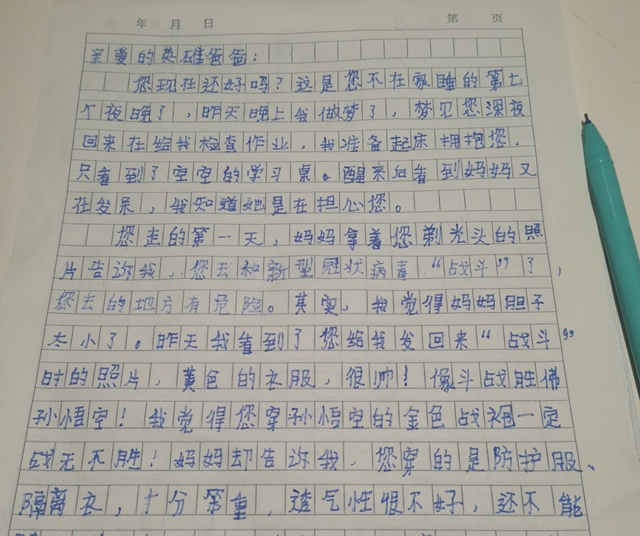 年 月 日 第 页
亲爱的英雄爸爸：
您现在还好吗？这是您不在家睡的第七
个夜晚了，昨天晚上我做梦了，梦见您深夜
回来在给我检查作业，我准备起床拥抱您，
只看到了空空的学习桌。醒来后看到妈妈又
在发呆，我知道她是在担心您。
您走的第一天，妈妈拿着您剃光头的照
片告诉我，您去和新型冠状病毒“战斗”了，
您去的地方有危险。其实，我觉得妈妈胆子
太小了。昨天我看到了您给我发回来“战斗”
时的照片，黄色的衣服，很帅！像斗战胜佛
孙悟空！我觉得您穿孙悟空的金色战袍一定
战无不胜！妈妈却告诉我，您穿的是防护服、
隔离衣，十分笨重，透气性很不好，还不能